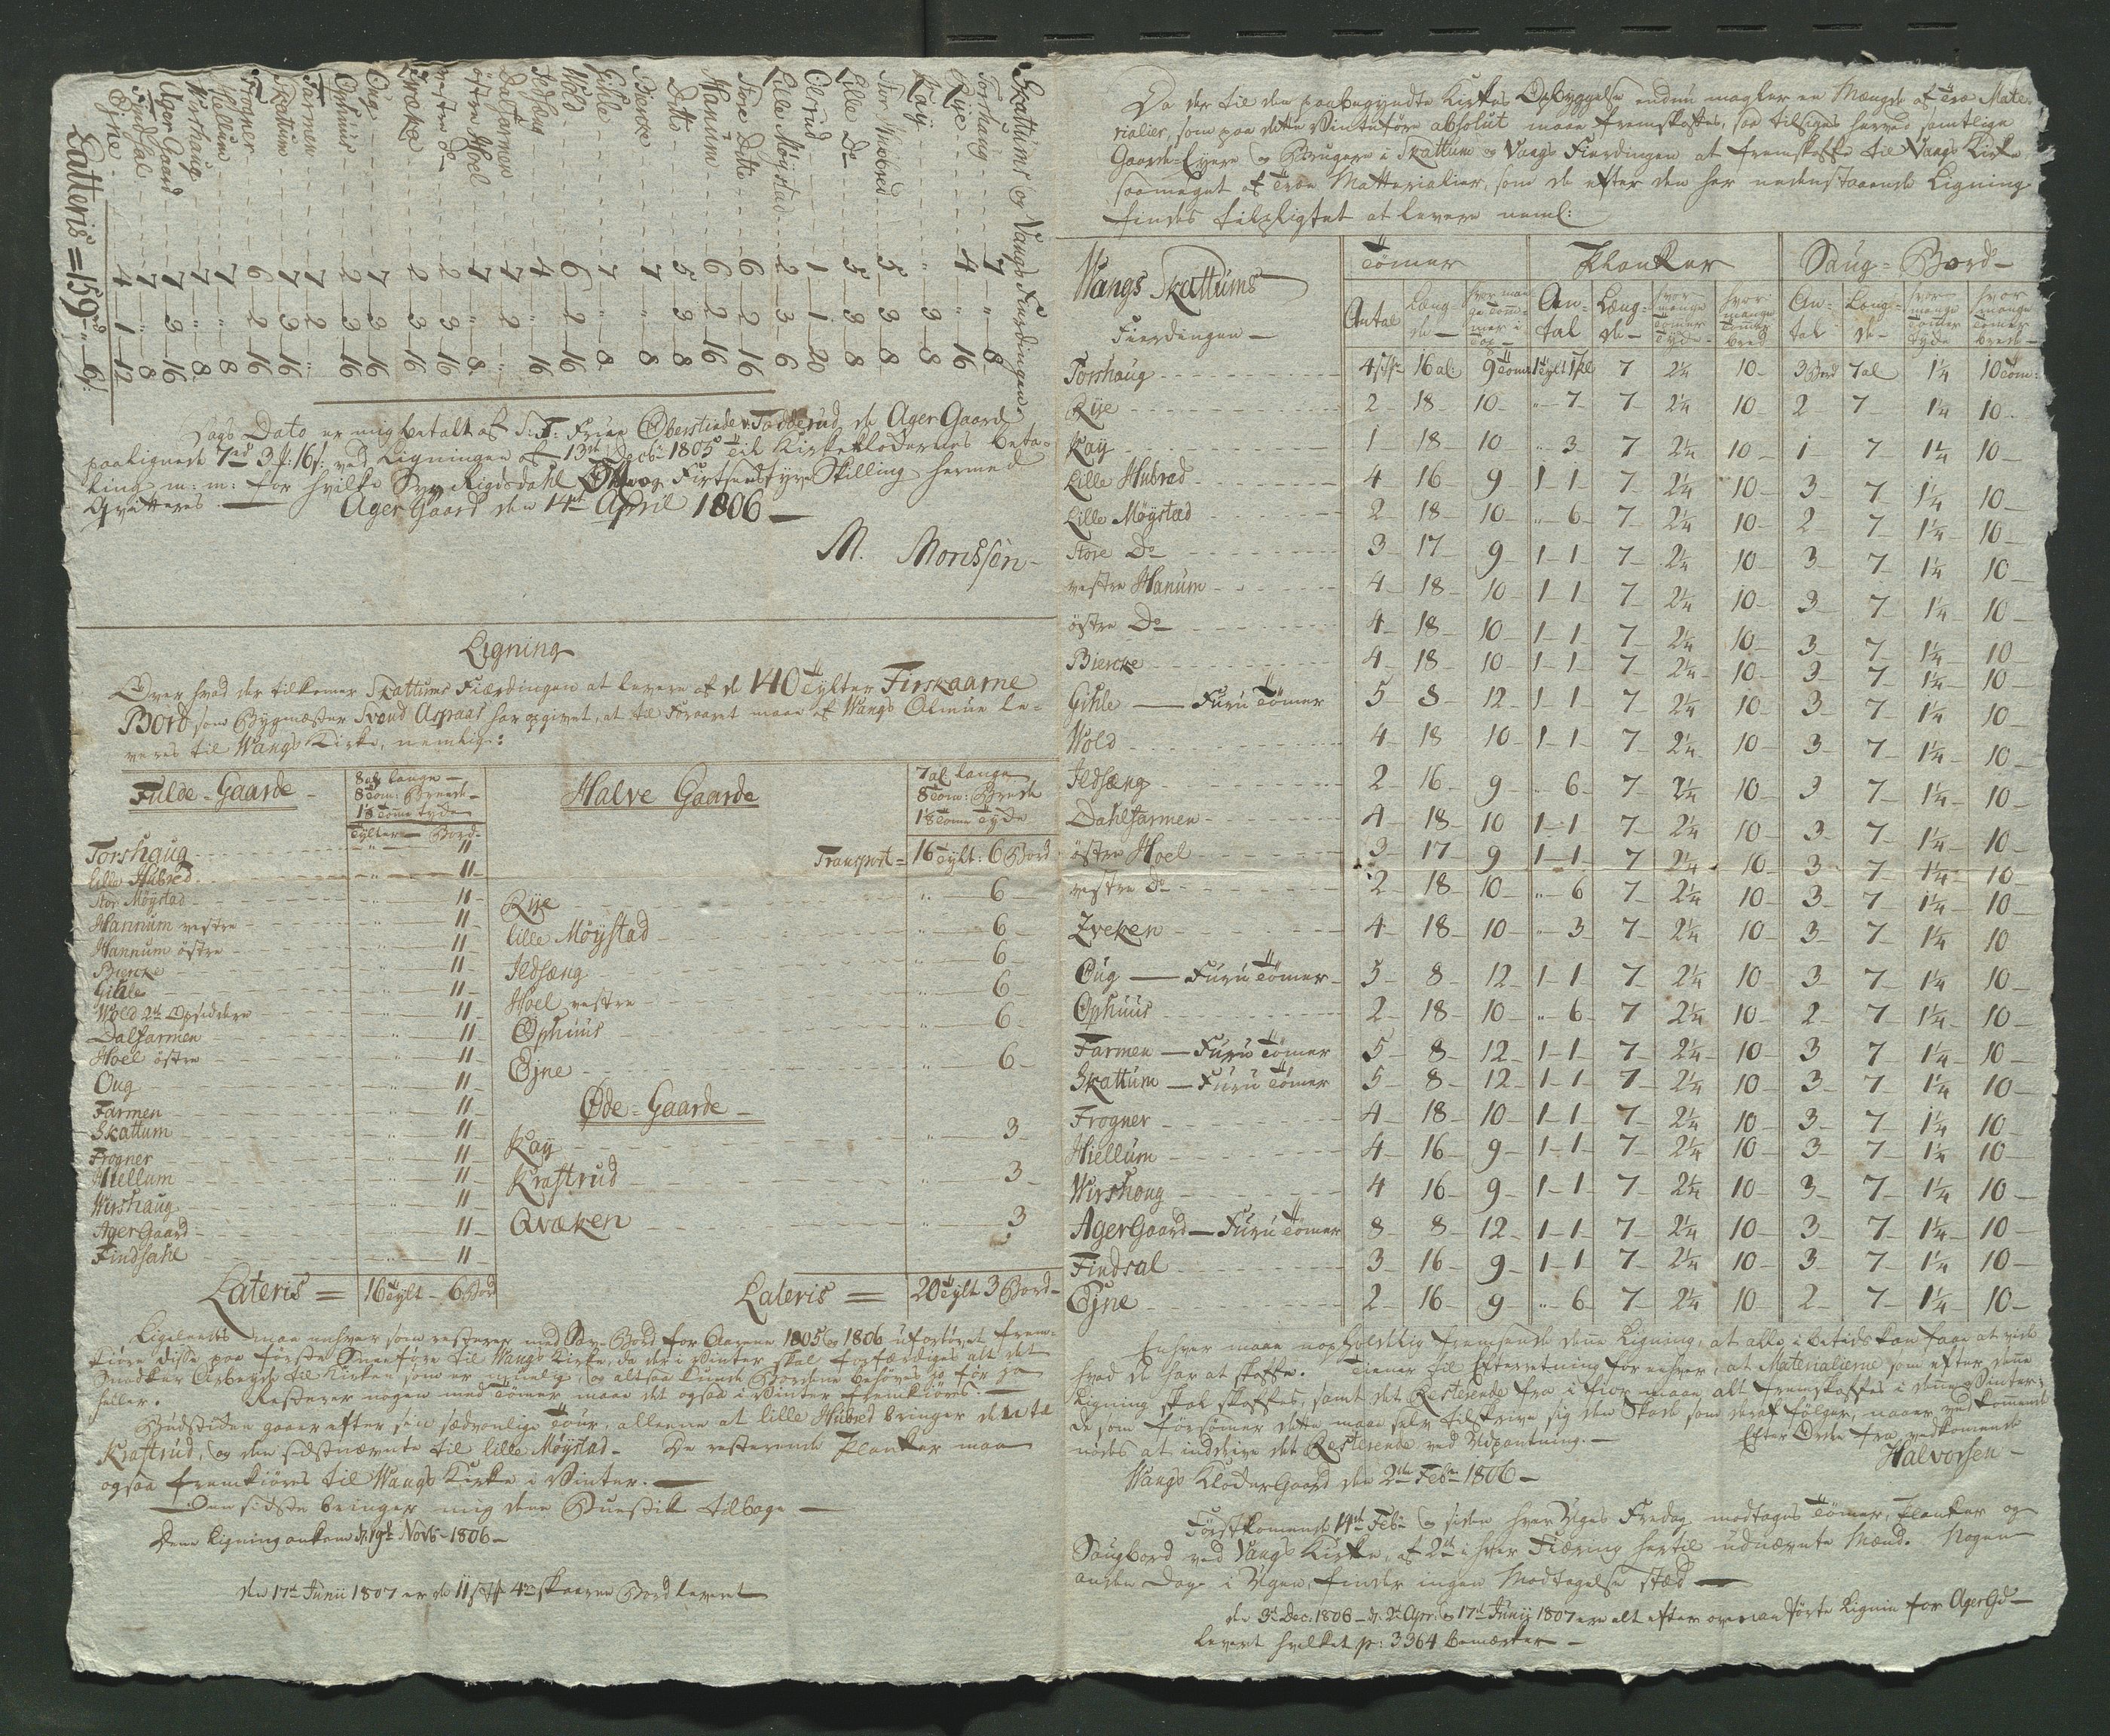 Skattums og Vangs Fierdingens
Torshaug 7 „ 8
Rije 4 „ 16
Kaÿ „ 3 8
Stor Huobred 5 3 8
Lille Do 5 3 8
Olrud 1 1 20
Lille Möistad 2 3 6
Store Ditto 6 2 16
Hanum 6 2 16
Ditto 5 3 8
Biercke 7 „ 8
Gihle 7 „ 8
Wold 6 2 16
Ildseng 4 „ 16
Dalfarmen 7 2 „
östre Hoel 7 „ 8
vestre do 2 3 16
Qvæke 2 3 16
Oug 7 3 16
Ophuus 2 3 16
Farmen 7 2 „
Skattum 7 3 16
Frogner 6 2 16
Hiellum 7 „ 8
Wirshaug 7 „ 8
Ager Gaard 7 3 16
Findsal 7 „ 8
Öjne 4 1 12
Latteris = 159 rd „ 6 s
Dags Dato er mig betalt af S: T: Frue Oberstinde v: Todderud de Ager Gaard
paalignede 7 rd 3 f: 16 s: ved Ligningen af 13de Decbr 1805 til Kirkeklodernes beta-
ling m: m: for hvilke Syv Rigsdahl og Firtsendstyve Skilling hermed
Qvitteres. — Ager Gaard den 14de April 1806 —
M. Morissen
Ligning
Over hvad der tilkommer Skattums Fierdingen at levere af de 140 Tylter Firskaarne
Bord som Bygmester Svend Aspaas har opgivet, at til Foraaret maae af Wangs Almue le-
veres til Wangs Kirke, nemlig:
Fulde-Gaarde 8 al: lange 8 Tom: Breede 1⅛ Tom Tyde
Tylter Bord
Torshaug „ 11
lille Hubred „ 11
Stor Möystad „ 11
Hannum vestre „ 11
Hannum östre „ 11
Biercke „ 11
Gihle „ 11
Wold 2de Opsiddere „ 11
Dalfarmen „ 11
Hoel östre „ 11
Oug „ 11
Farmen „ 11
Skattum „ 11
Frogner „ 11
Hiellum „ 11
Wirshaug „ 11
AgerGaard „ 11
Findsahl „ 11
Lateris = 16 Tylt 6 Bord
Halve Gaarde 7 al lange 8 Tom: Brede 1⅛ Tom Tyde
Transport = 16 Tylt: 6 Bord
Rije „ 6
lille Möystad „ 6
Ildsæng „ 6
Hoel vestre „ 6
Ophuus „ 6
Öjne „ 6
Øde-Gaarde
Kaÿ „ 3
Kraftrud „ 3
Qvæken „ 3
Lateris = 20 Tylt 3 Bord
Ligeledes maae enhver som resterer med Sav-Bord for Aarene 1805 og 1806 ufortövet frem-
kiöre disse paa förste Sneeföre til Wangs Kirke, da der i Vinter skal forfærdiges alt det
Snedker Arbeyde til Kirken som er muelig, og altsaa kunde Bordene behöves jo för jo
heller. Resterer nogen med Tömer maae det ogsaa i Vinter fremkiöres. —
Budstiden gaaer efter sin sædvanlige Tour, alleene at lille Hubred bringer dette til
Kraftrud, og den sidstnævnte til lille Möystad. De resterende Planker maae
ogsaa fremkiöres til Wangs Kirke i Vinter. —
Den sidste bringer mig denne Huesedel tilbage —
Denne Ligning ankom d: 19de Novbr 1806 —
den 17de Junii 1807 er de 11 st 4re skaarne Bord levert
Da der til den paabegyndte Kirkes Opbyggelse endnu magler en Mængde af Træ Mate-
rialier, som paa dette Vinterföre absolut maae fremskaffes, saa tilsiges herved samtlige
Gaards-Eyere og Brugere i Skattum og Vangs Fierdingen at fremskaffe til Vangs Kirke
saameget af Træ Matterialier, som de efter den her nedenstaaende Ligning
findes tilpligtet at levere neml:
Wangs Skattums Fierdingen Tömer Planker Saug-Bord
Antal Længde hvor mange Tommer i Top An-tal Længde hvor mange Tommer Tyde hvor mange Tommer bred An-tal Længde hvor mange Tommer tyde hvor mange Tommer brede
Torshaug 4 st 16 al: 9 Tom 1 Tylt 1 Pl 7 2¼ 10 3 Bord 7 al 1¼ 10 Tom:
Rije 2 18 10 „ 7 7 2¼ 10 2 7 1¼ 10
Kaÿ 1 18 10 „ 3 7 2¼ 10 1 7 1¼ 10
Lille Hubred 4 16 9 1 1 7 2¼ 10 3 7 1¼ 10
Lille Möystad 2 18 10 „ 6 7 2¼ 10 2 7 1¼ 10
Store Do 3 17 9 1 1 7 2¼ 10 3 7 1¼ 10
vestre Hanum 4 18 10 1 1 7 2¼ 10 3 7 1¼ 10
östre Do 4 18 10 1 1 7 2¼ 10 3 7 1¼ 10
Biercke 4 18 10 1 1 7 2¼ 10 3 7 1¼ 10
Gihle — Furu Tömer 5 8 12 1 1 7 2¼ 10 3 7 1¼ 10
Wold 4 18 10 1 1 7 2¼ 10 3 7 1¼ 10
Ildsæng 2 16 9 „ 6 7 2¼ 10 3 7 1¼ 10
Dahlfarmen 4 18 10 1 1 7 2¼ 10 3 7 1¼ 10
östre Hoel 3 17 9 1 1 7 2¼ 10 3 7 1¼ 10
vestre do 2 18 10 „ 6 7 2¼ 10 3 7 1¼ 10
Zveken 4 18 10 „ 3 7 2¼ 10 3 7 1¼ 10
Oug — Furu Tömer 5 8 12 1 1 7 2¼ 10 3 7 1¼ 10
Ophuus 2 18 10 „ 6 7 2¼ 10 2 7 1¼ 10
Farmen — Furu Tömer 5 8 12 1 1 7 2¼ 10 3 7 1¼ 10
Skattum — Furu Tömer 5 8 12 1 1 7 2¼ 10 3 7 1¼ 10
Frogner 4 18 10 1 1 7 2¼ 10 3 7 1¼ 10
Hiellum 4 16 9 1 1 7 2¼ 10 3 7 1¼ 10
Wirshoug 4 16 9 1 1 7 2¼ 10 3 7 1¼ 10
AgerGaard — Furu Tömer 8 8 12 1 1 7 2¼ 10 3 7 1¼ 10
Findsal 3 16 9 1 1 7 2¼ 10 3 7 1¼ 10
Öjne 2 16 9 „ 6 7 2¼ 10 2 7 1¼ 10
Enhver maae uopholdelig fremsende denne Ligning, at alle i betids kan faae at vide
hvad de har at skaffe. Tiener til Efterretning for enhver, at Materialierne som efter denne
Ligning skal skaffes, samt det Resterende fra i fior maae alt fremskaffes i denne Vinter;
de som forsömer dette maae selv tilskrive sig den Skade som deraf fölger, naar vedkommende
nödes at inddrive det Resterende ved Udpantning. — Efter Ordre fra vedkommende
Wangs KloderGaard den 2den Febr 1806 — Halvorsen
Förstkommende 14de Febr og siden hver Uges Fredag modtages Tömer, Planker og
Saugbord ved Vangs Kirke, af 2de i hver Fiæring hertil udnævnte Mænd. Nogen
anden Dag i Ugen finder ingen Modtagelse stæd —
den 3de Dec: 1806 – d. 2de Apr: og 17de Junij 1807 er alt efter ovenanförte Lignin for AgerGd
levert hvilket p: 3364 bemærker —